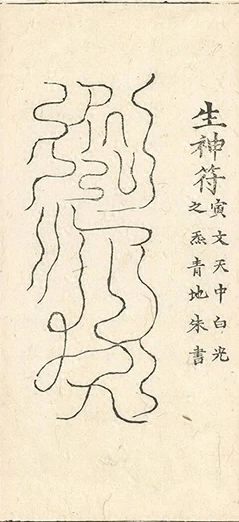 生神符
寅文天中白光
之炁青地朱書